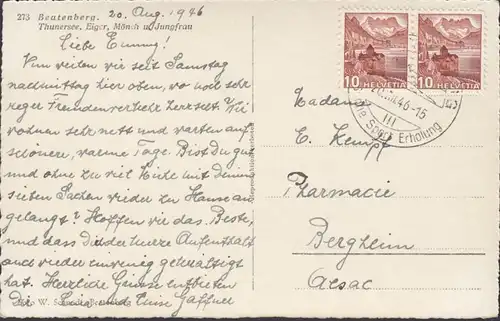 273 Beatenberg. 20. Aug. 1946
Thunersee, Eiger, Mönch u. Jungfrau
Liebe Emmy!
Nun weilen wir seit Samstag
nachmittag hier oben, wo noch sehr
reger Fremdenverkehr herrscht. Wir
wohnen sehr nett und warten auf
schönere, warme Tage. Bist Du gut
und ohne zu viel Hitze mit Deinen
sieben Sachen wieder zu Hause an-
gelangt? Hoffen wir das Beste,
und dass Dich der kurze Aufenthalt
auch wieder ein wenig gekräftigt
hat. Herzliche Grüsse entbieten
Dir und
W.
10 HELVETIA
10 HELVETIA
46-15
III
Sport Erholung
Madame
E. Kempf
Pharmacie
Bergheim
Alsac.